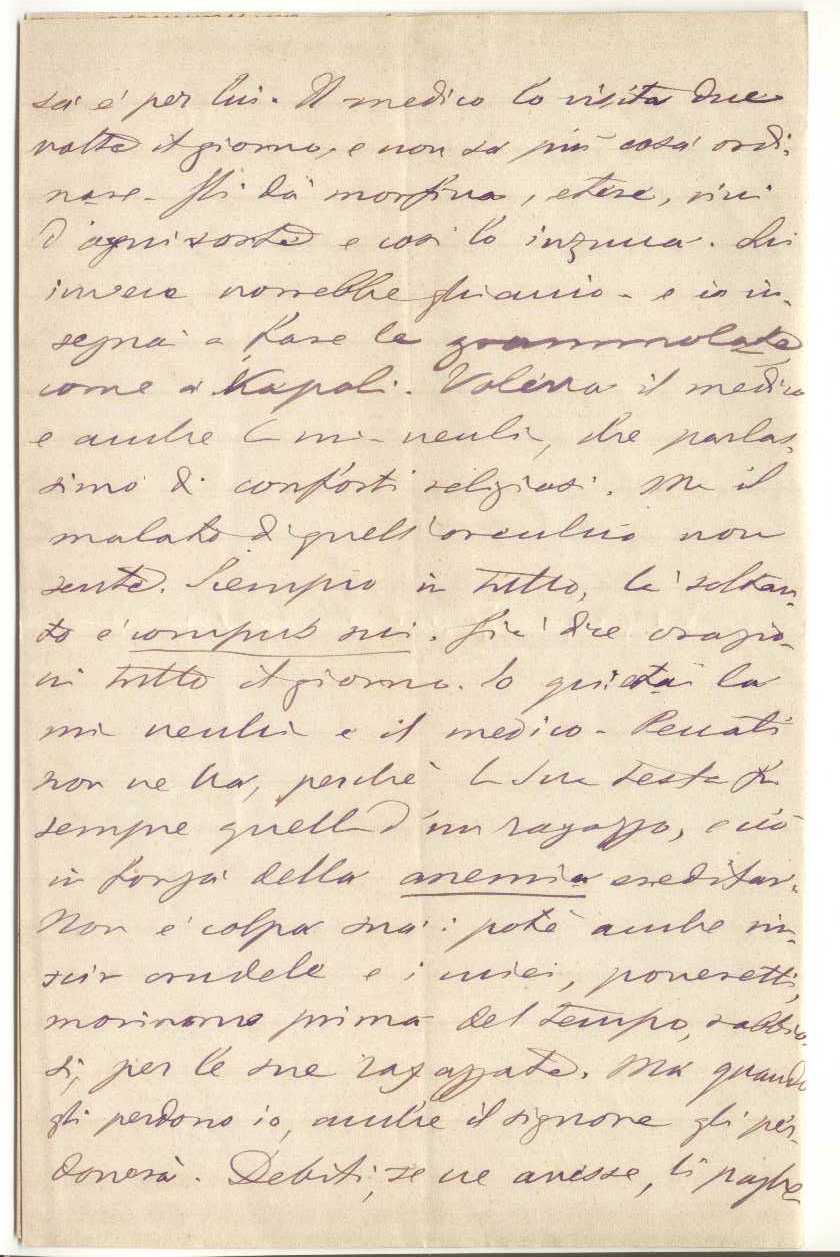 sa è per lui. Il medico lo visita due
volte il giorno, e non sa più cosa ordi-
nare. Gli dà morfina, etere, vini
d'ogni sorte e così lo inzuca. Lui
invece vorrebbe ghiaccio - e io in-
segnai a fare le grammolate
come a Napoli. Voleva il medico
e anche la mi-neuli, che parlas-
simo di conforti religiosi. Ma il
malato da quell'orecchio non
sente. Scempio in tutto, là soltan-
to è compus sui. Già dice orazio-
ni tutto il giorno. Io quietai la
mi neuli e il medico - Peccati
non ne ha, perchè la sua testa fu
sempre quella d'un ragazzo, e ciò
in forza della anemia ereditar.
Non è colpa sua: potè anche riu-
scir crudele e i miei, poveretti,
morirono prima del tempo, rabbio-
si, per le sue ragazzate. Ma quando
gli perdono io, anche il signore gli per-
donerà. Debiti, se ne avesse, li paghe